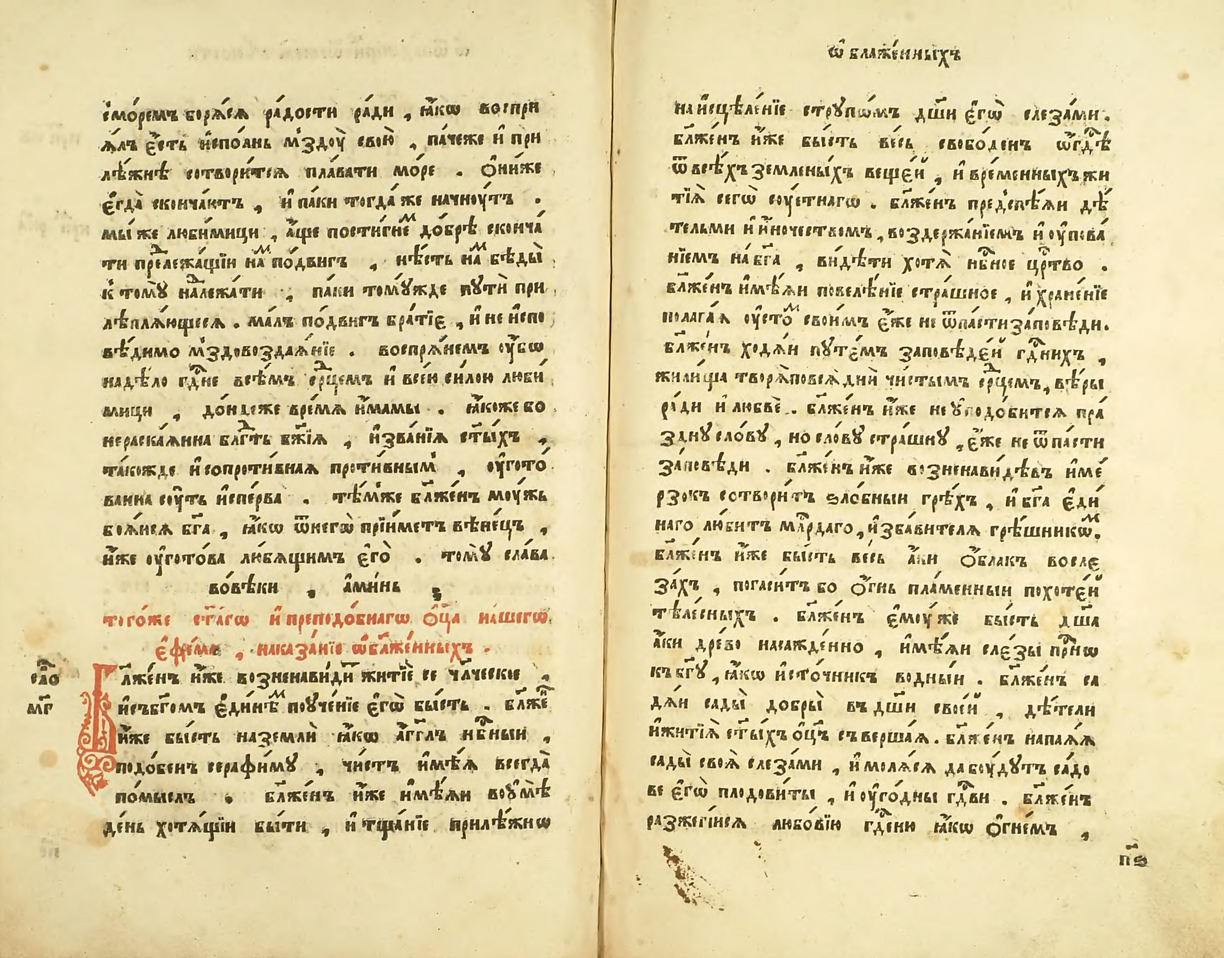 с̾мо́ремъ боря́сѧ ра́дости ра́ди , ꙗ҆́кѡ воспрї
ѧ́лъ є҆́сть и҆спо́лнь м̾здоу̀ свою̀ , па́чеже и҆ при
лѣ́жнѣ сотвори́тсѧ пла́вати мо́ре . Ѻ҆ни́же
є҆гда̀ сконча́ютъ , и҆ па́ки тогда́же начноу́тъ .
мы́ же люби́мици , а҆́ще пости́гнеⷨ до́брѣ сконча
ти прележа́щїи наⷨ по́двигъ , нѣ́сть наⷨ бѣды̀
к̾ томꙋ̀ належа́ти , па́ки томꙋ́жде пꙋтѝ при
лѣплѧ́ющесѧ . ма́лъ по́двигъ бра́тїє , и҆ не и҆спо
вѣ́димо м̾здовоздаѧ́нїе . воспрѧ́немъ оу҆́бѡ
на дѣ́ло гдⷭ҇не всѣ́мъ се́рⷣцемъ и҆ все́ю си́лою люби
мици , до́ндеже вре́мѧ и҆́мамы . ꙗ҆́коже бо
нераска́ѧнна блгⷣть бж҃їѧ , и҆ зва́нїѧ ст҃ы́хъ ,
та́кожде и҆ сопроти́внаѧ проти́внымъ , оу҆гото́
ванна соу́ть и҆спе́рва . тѣ́мже бл҃же́нъ моу́жь
боѧ́исѧ бг҃а , ꙗ҆́кѡ ѿнегѡ̀ прїи́метъ вѣне́цъ ,
и҆́же оу҆гото́ва лю́бѧщимъ є҆го̀ . томꙋ̀ сла́ва
вовѣ́ки , а҆ми́нь ,
тогѡ́же ст҃а́гѡ и҆ преподо́бнагѡ ѻ҆ц҃а̀ на́шегѡ
є҆фре́ма , наказа́нїе ѡ҆ бл҃же́нныхъ .
сло́
мг҃
Бл҃же́нъ и҆́же возненави́ди житїѐ се чл҃ческое ,
и҆ съ бг҃омъ є҆ди́нѣⷨ поуче́нїе є҆гѡ̀ бы́сть . бл҃же́ⷩ
и҆́же бы́сть на землѝ ꙗ҆́кѡ а҆́гг҃лъ нбⷭ҇ныи ,
подо́бенъ серафи́мꙋ , чи́стъ и҆мѣ́ѧ всегда̀
по́мыслъ . бл҃же́нъ и҆́же и҆мѣ́ѧи воумѣ̀
де́нь хотѧ́щїи бы́ти , и҆ тща́нїе прилѣ́жнѡ
ѡ҆ блаже́нныхъ
на и҆сцѣле́нїе стрꙋпѡ́мъ дш҃и є҆гѡ̀ слеза́ми .
бл҃же́нъ и҆́же бы́сть ве́сь свобо́денъ ѡ҆ гдⷭ҇ѣ
ѿ всѣ́хъ земле́ныхъ веще́й , и҆ вре́менныхъ жи
тїѧ̀ сегѡ̀ соу́етнагѡ . бл҃же́нъ предспѣ́ѧи дѣ́
тельми и҆ и҆́ночествомъ , воздержа́нїемъ и҆ оу҆пова́
нїемъ на бг҃а , ви́дѣти хотѧ̀ нбⷭ҇ное црⷭ҇тво .
бл҃же́нъ и҆мѣ́ѧи повелѣ́нїе стра́шное , и҆ хране́нїе
полага́ѧ оу҆сто́ⷨ свои́мъ є҆́же не ѿпа́сти за́повѣди .
бл҃же́нъ ходѧ́и пꙋте́мъ за́повѣде́й гдⷭ҇нихъ ,
жили́ща творѧ̀ по всѧ̀ днѝ чи́стымъ се́рⷣцемъ , вѣ́ры
ра́ди и҆ любвѐ . бл҃же́нъ и҆́же не оу҆подо́битсѧ пра́
зднꙋ сло́вꙋ , но сло́вꙋ стра́шнꙋ , є҆́же не ѿпа́сти
за́повѣди . бл҃же́нъ и҆́же возненави́дѣвъ и҆ ме́
рзокъ сотвори́тъ ѕло́бныи грѣ́хъ , и҆ бг҃а є҆ди́
наго лю́битъ млⷭ҇рдаго , и҆зба́вителѧ грѣ́шникѡⷨ .
бл҃же́нъ и҆́же бы́сть ве́сь а҆́ки ѻ҆́блакъ во сле
за́хъ , погаси́тъ бо ѻ҆́гнь пла́менныи похоте́й
тѣле́сныхъ . бл҃же́нъ є҆моу́же бы́сть дш҃а̀
а҆́ки дре́во насажде́нно , и҆мѣ́ѧи сле́зы прⷭ҇нѡ
къ бг҃ꙋ , ꙗ҆́кѡ и҆сто́чникъ во́дныи . бл҃же́нъ са
дѧ́и сады̀ добры̀ въ дш҃и свое́й , дѣ́тели
и҆ житїѧ̀ ст҃ы́хъ ѻ҆ц҃ъ съверша́ѧ . бл҃же́нъ напаѧ́ѧ
сады̀ своѧ̀ слеза́ми , и҆ молѧ́сѧ да боу́дутъ садо
ве є҆гѡ̀ плодови́ты , и҆ оу҆го́дны гдⷭ҇ви . бл҃же́нъ
разжегі́исѧ любо́вїю гдⷭ҇ею ꙗ҆́кѡ ѻ҆гне́мъ ,
пѕ҃